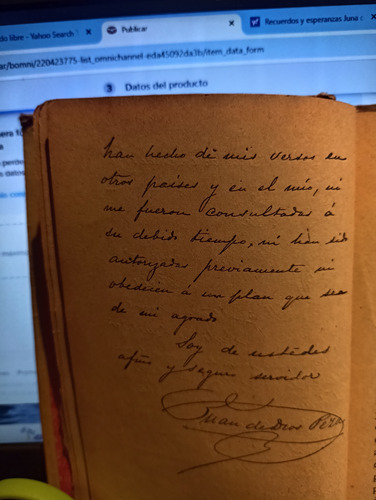 do libre - Yahoo Search
Publicar
Recuerdos y esperanzas Juna d
ar/bomni/220423775-list_omnichannel-eda45092da3b/item_data_form
3 Datos del producto
han hecho de mis versos en
otros países y en el mío, ni
me fueron consultadas á
su debido tiempo, ni han sido
autorizadas previamente ni
obedecen á un plan que sea
de mi agrado
Soy de ustedes
afmo y seguro servidor
Juan de Dios Peza